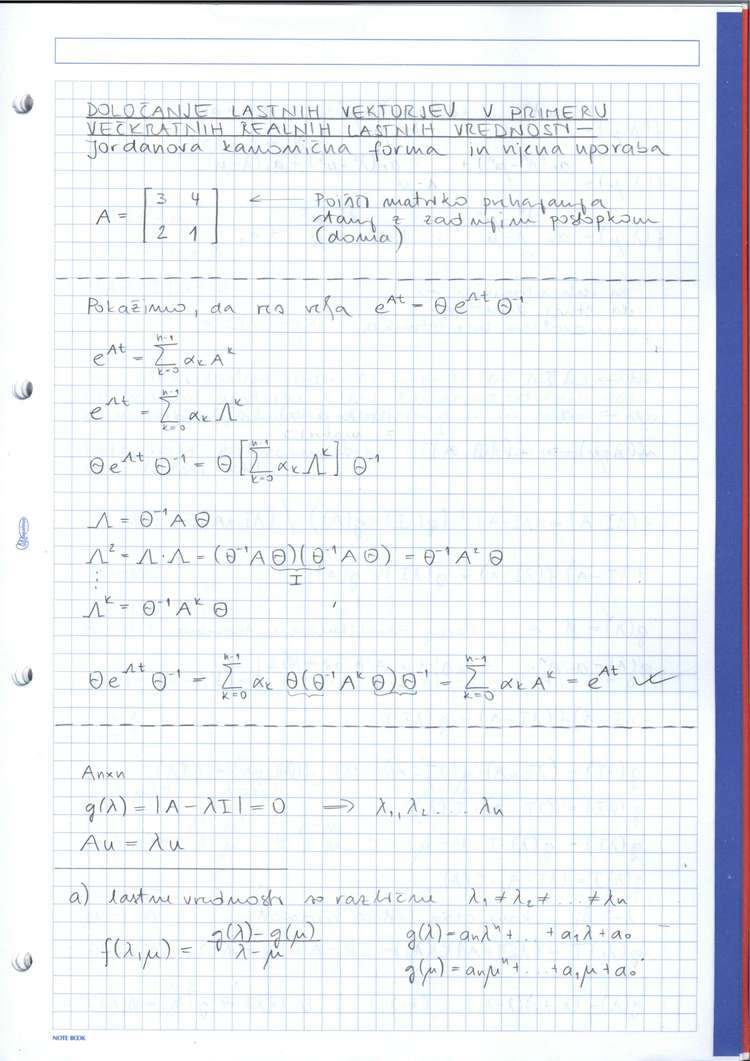 DOLOČANJE LASTNIH VEKTORJEV V PRIMERU
VEČKRATNIH REALNIH LASTNIH VREDNOSTI –
Jordanova kanonična forma in njena uporaba
A = [3 4; 2 1] ← Poišči matriko prehajanja
stanj z zadnjim postopkom
(doma)
Pokažimo, da res velja e^{At} = Θ e^{Λt} Θ^{-1}
e^{At} = Σ_{k=0}^{n-1} α_k A^k
e^{Λt} = Σ_{k=0}^{n-1} α_k Λ^k
Θ e^{Λt} Θ^{-1} = Θ [Σ_{k=0}^{n-1} α_k Λ^k] Θ^{-1}
Λ = Θ^{-1} A Θ
Λ² = Λ·Λ = (Θ^{-1} A Θ)(Θ^{-1} A Θ) = Θ^{-1} A² Θ
⋮ I
Λ^k = Θ^{-1} A^k Θ
Θ e^{Λt} Θ^{-1} = Σ_{k=0}^{n-1} α_k Θ(Θ^{-1} A^k Θ)Θ^{-1} = Σ_{k=0}^{n-1} α_k A^k = e^{At} ✓
Anxn
g(λ) = |A – λI| = 0 ⟹ λ₁, λ₂ ... λn
Au = λu
a) lastne vrednosti so različne λ₁ ≠ λ₂ ≠ ... ≠ λn
f(λ,μ) = (g(λ) – g(μ)) / (λ – μ) g(λ) = anλ^n + ... + a₁λ + a₀
g(μ) = anμ^n + ... + a₁μ + a₀
NOTE BOOK